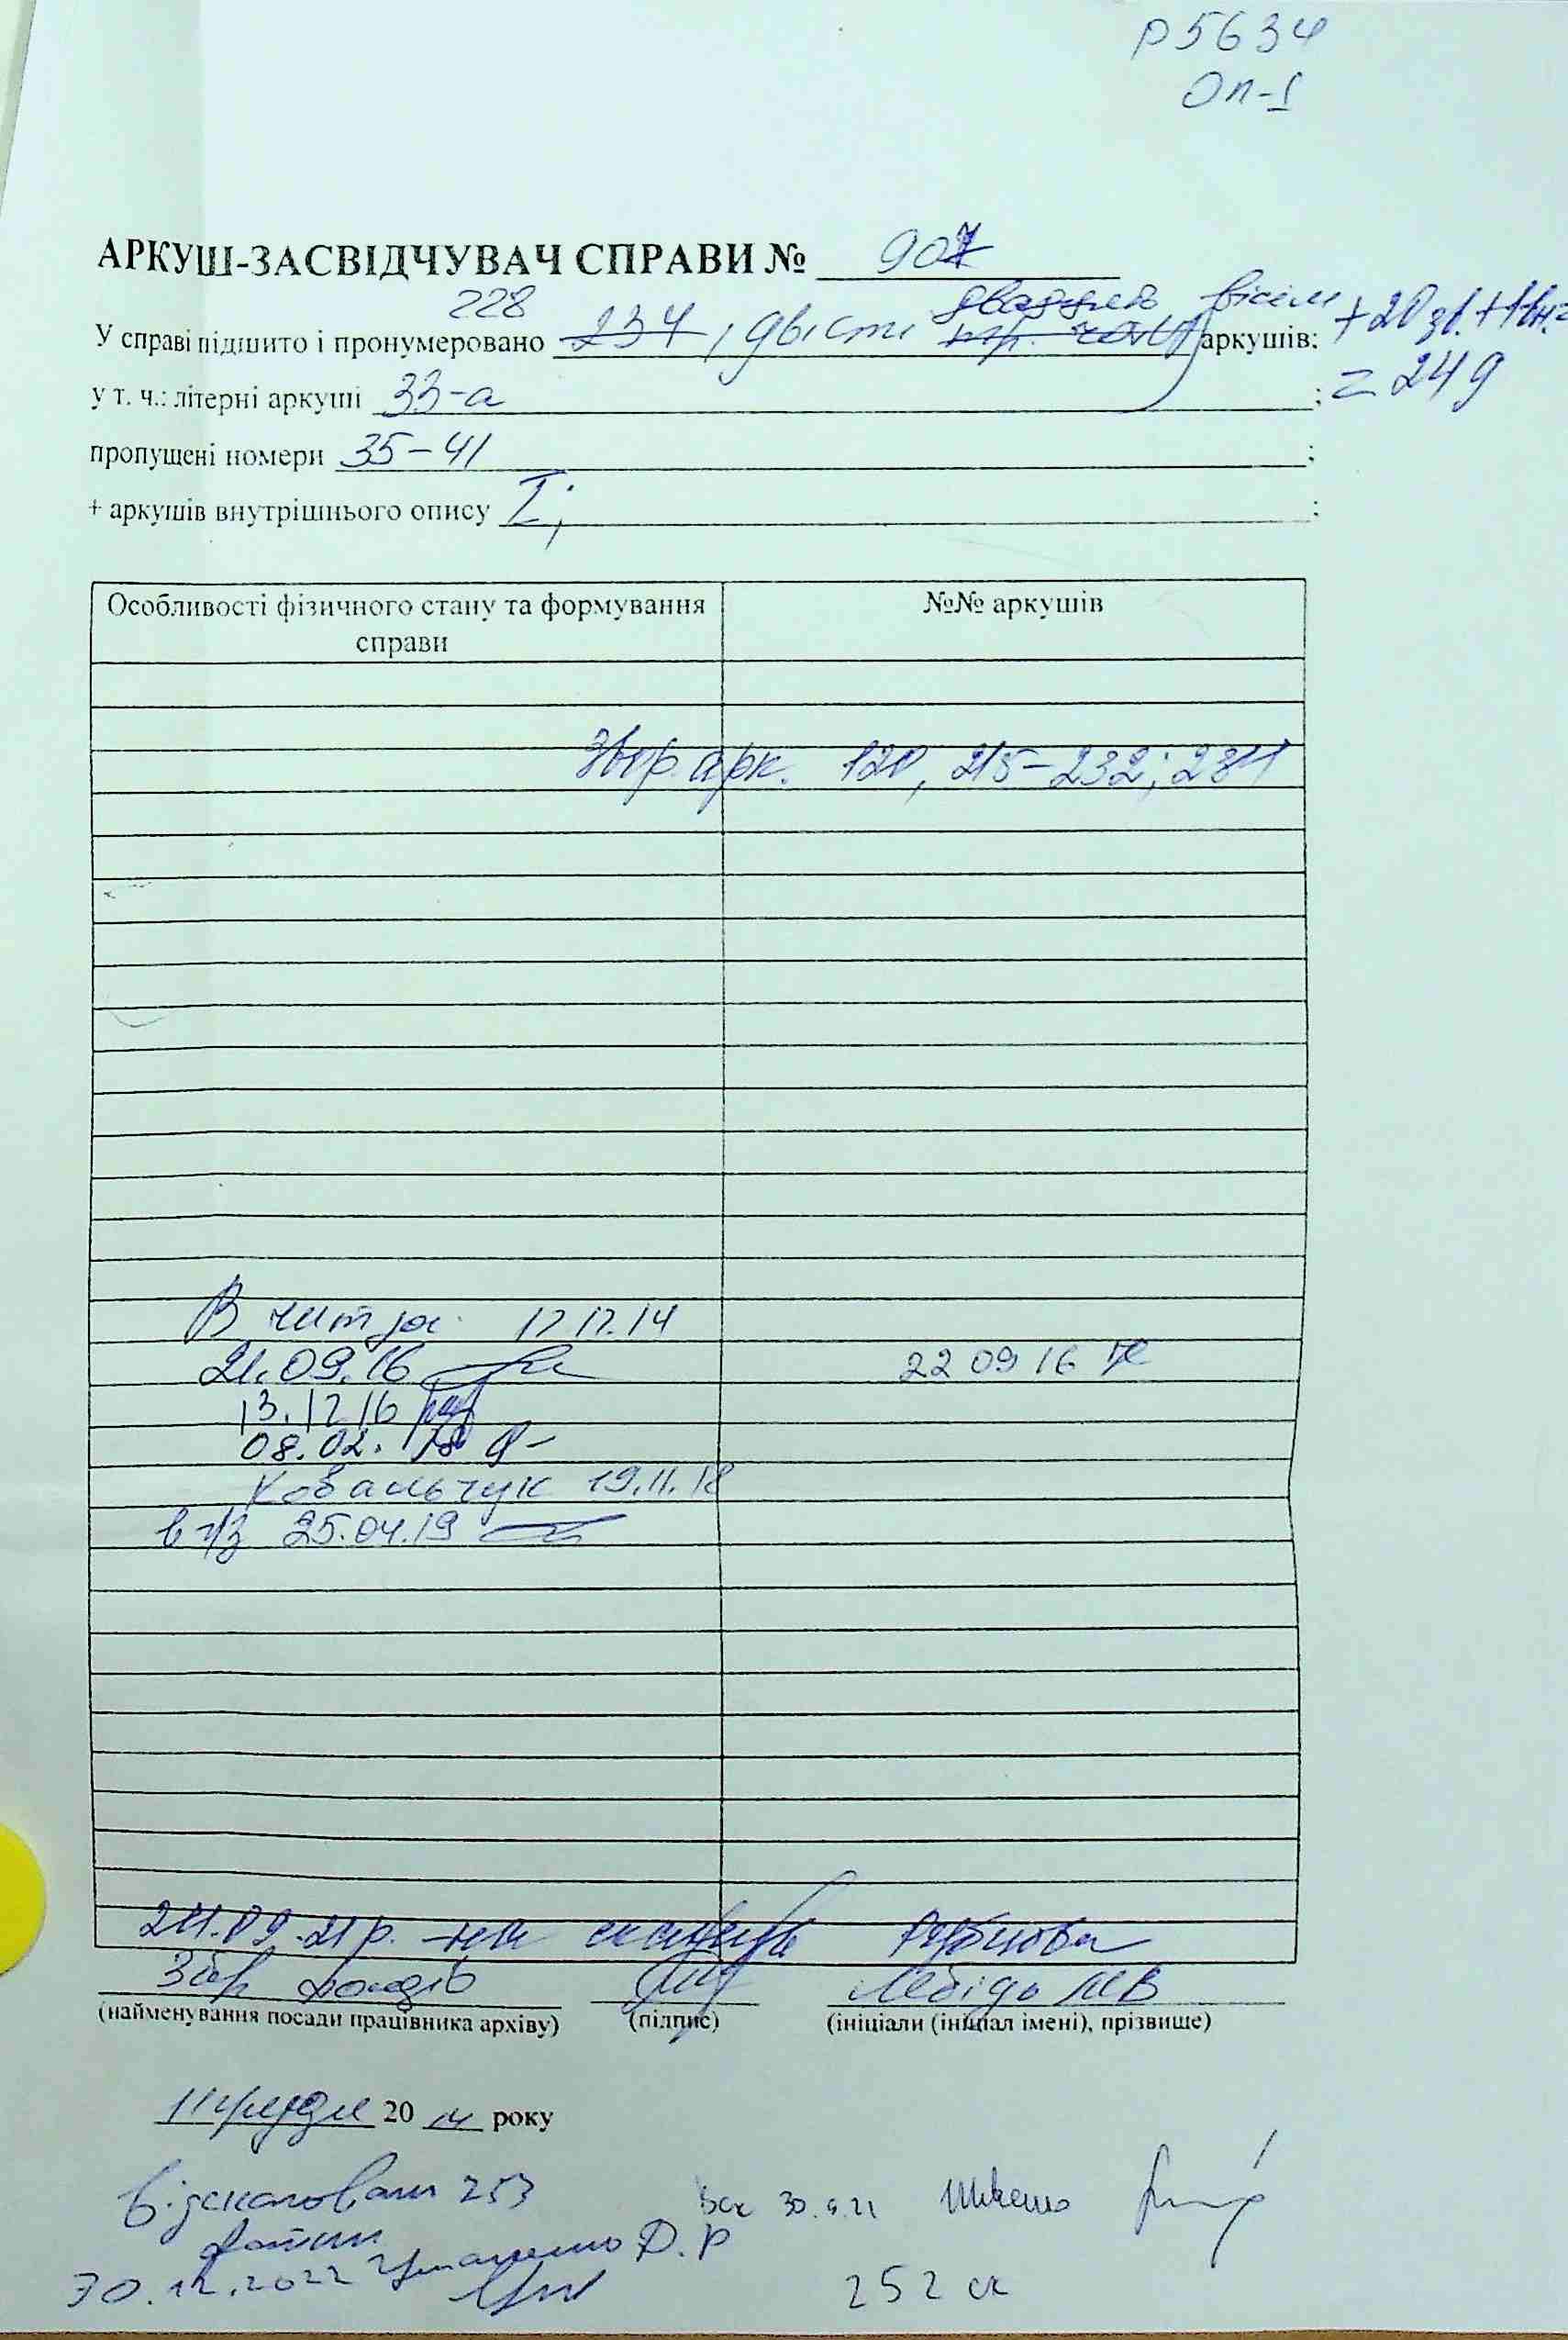 Р5634
Оп-1
АРКУШ-ЗАСВІДЧУВАЧ СПРАВИ № 907
228 двадцять вісім
У справі підшито і пронумеровано 234, двісті аркушів; +20 зв. +1 вн. =
у т. ч.: літерні аркуші 33-а ; = 249
пропущені номери 35-41 ;
+ аркушів внутрішнього опису I; ;
Особливості фізичного стану та формування справи
№№ аркушів
Звор. арк. 120, 215-232; 234
В чит зал 17.12.14
21.09.16 22 09 16
13.12 16
08.02. 18
Ковальчук 19.11.18
в ч/з 25.04.19
24.09.21р. на
Збер фондів Лебідь
(найменування посади працівника архіву) (підпис) (ініціали (ініціал імені), прізвище)
грудня 20 14 року
Відскановані 253
файли
30.4.21
30.12.2022 Д.Р
252 ск